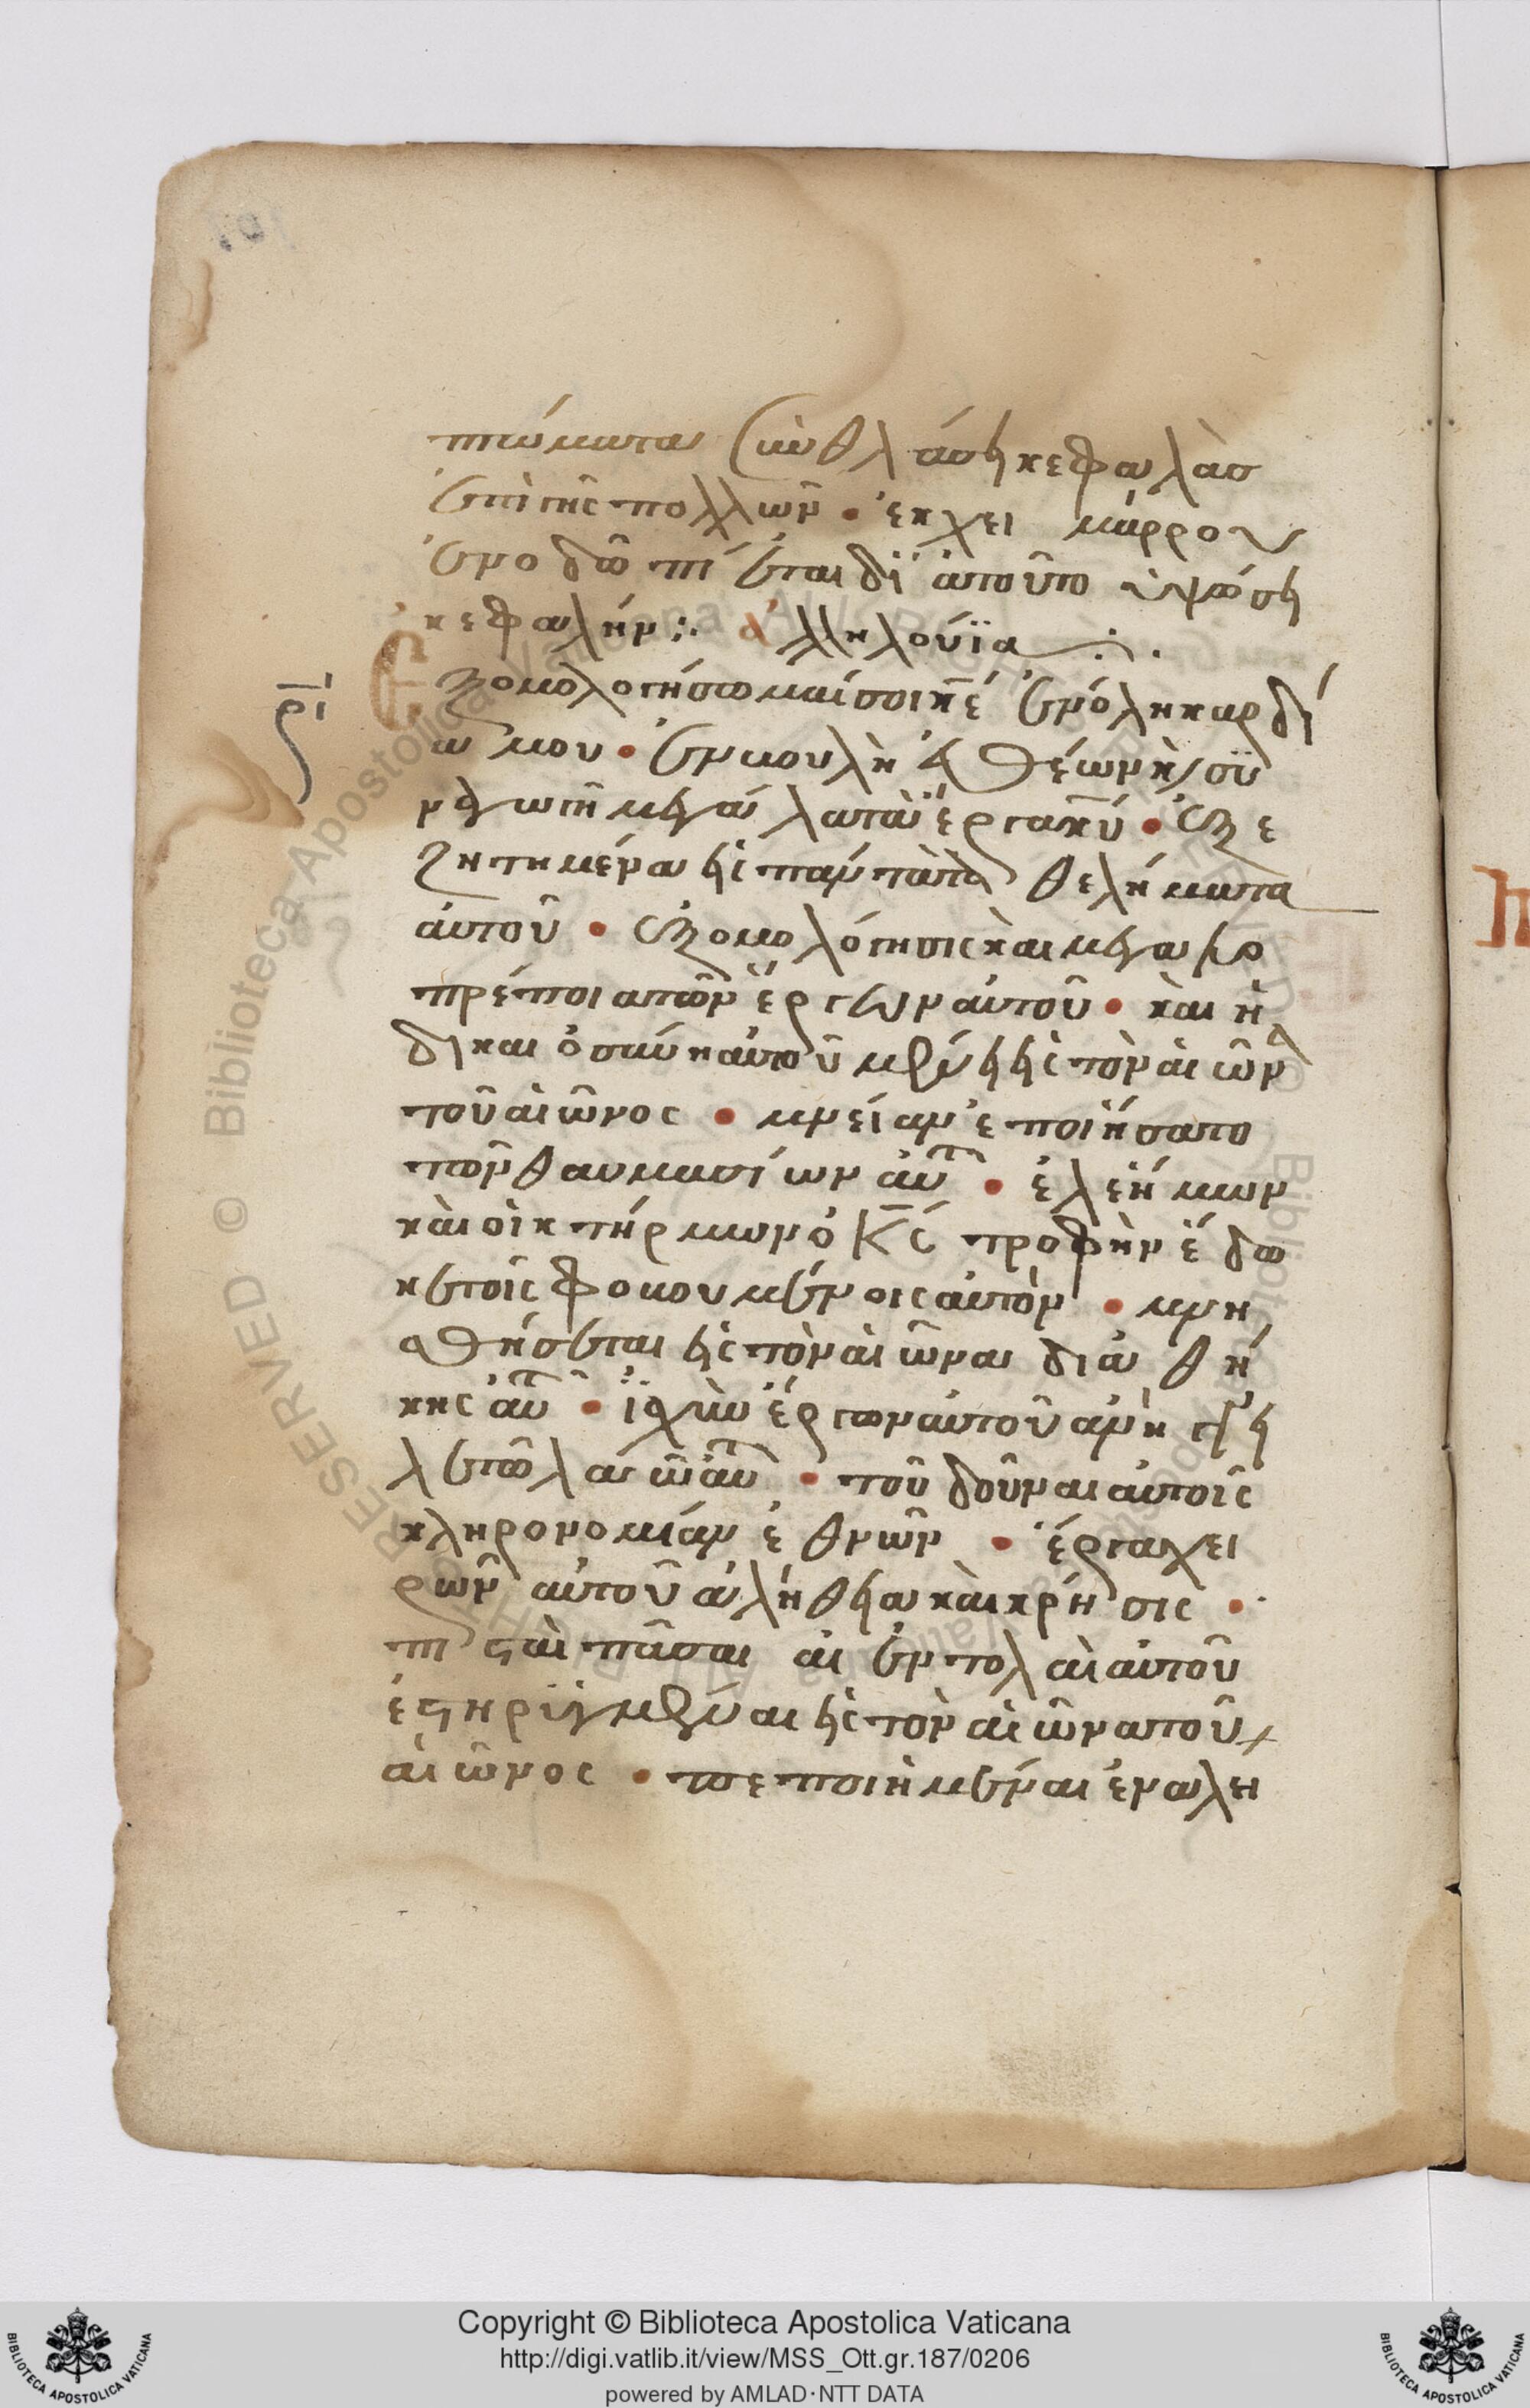 πτώματα συνθλάσει κεφαλὰσ
ἐπὶ γῆς πολλῶν • ἐκ χειμάρρου
ἐν ὁδῶ πίεται διὰ τοῦτο ὑψώσει
κεφαλήν :· ἀλληλούϊα :·
ρι
Ἐξομολογήσωμαί σοι κε ἐν ὅλη καρδί
α μου • ἐν βουλῆ εὐθέων κ συ
ναγωγῆ μεγάλα τὰ ἔργα κυ • ἐξε
ζητημένα εἰς πάντα τὰ θελήματα
αὐτοῦ • ἐξομολόγησις καὶ μεγαλο
πρέποια τῶν ἔργων αὐτοῦ • καὶ ἡ
δικαιοσύνη αὐτοῦ μένει εἰς τὸν αἰῶνα
τοῦ αἰῶνος • μνείαν ἐποιήσατο
τῶν θαυμασίων αὐτ • ἐλεήμων
καὶ οἰκτήρμων ὁ Κς τροφὴν ἔδω
κε τοῖς φοβουμένοις αὐτὸν • μνη
σθήσεται εἰς τὸν αἰῶνα διαθή
κης αὐτ • ἰσχὺν ἔργων αὐτοῦ ἀνήγγει
λε τῶ λαῶ αὐτ • τοῦ δοῦναι αὐτοῖς
κληρονομίαν ἐθνῶν • ἔργα χει
ρῶν αὐτοῦ ἀλήθεια καὶ κρήσις •
πισταὶ πᾶσαι αἱ ἐντολαὶ αὐτοῦ
ἐστηριγμέναι εἰς τὸν αἰῶνα τοῦ
αἰῶνος • πεποιημέναι ἐν ἀλη
Copyright © Biblioteca Apostolica Vaticana
http://digi.vatlib.it/view/MSS_Ott.gr.187/0206
powered by AMLAD·NTT DATA
BIBLIOTECA APOSTOLICA VATICANA
BIBLIOTECA APOSTOLICA VATICANA